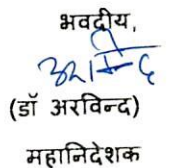 भवदीय,
अरविन्द
(डॉ अरविन्द)
महानिदेशक